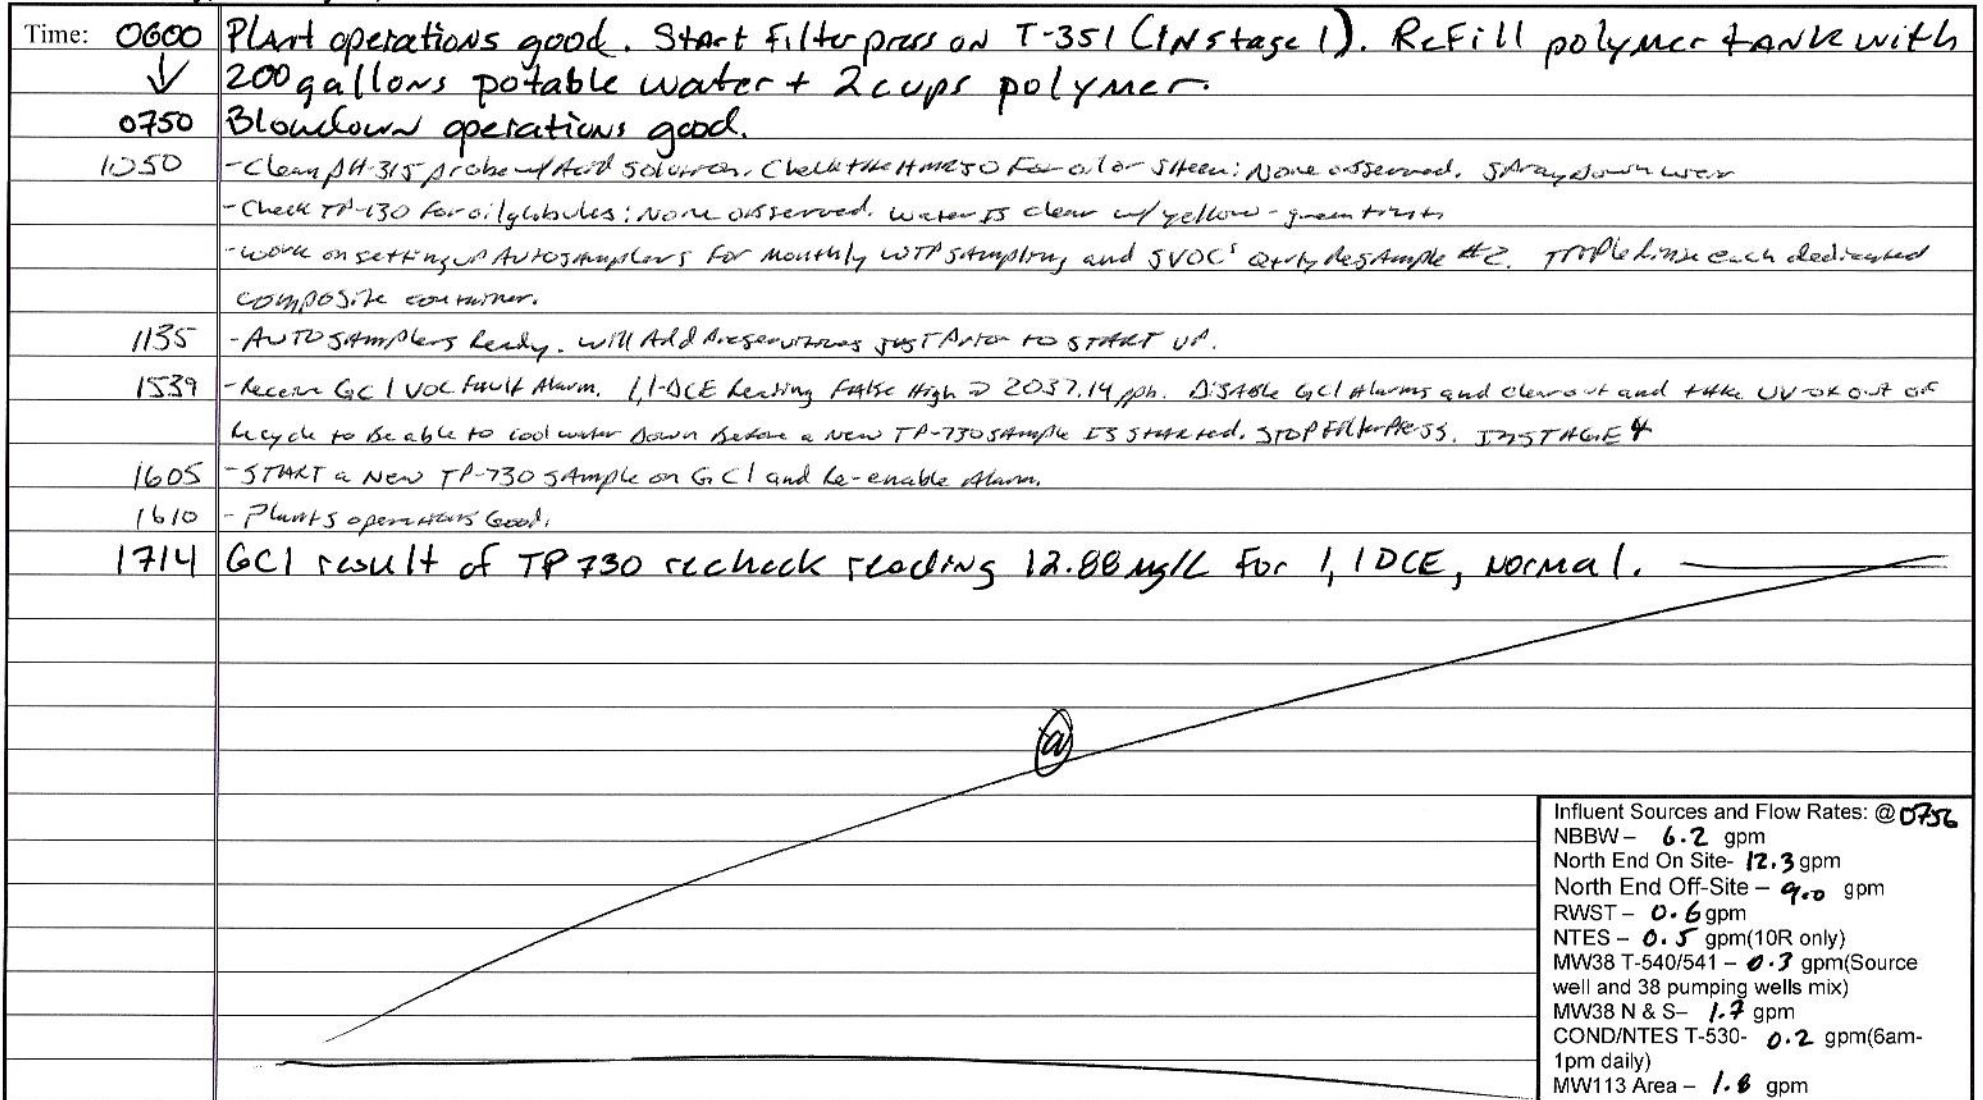 Time: 0600 Plant operations good. Start filterpress on T-351 (IN stage 1). Refill polymer tank with
200 gallons potable water + 2 cups polymer.
0750 Blowdown operations good.
1050 - Clean pH-315 probe w/ Acid solution. Check the HMI 50 for oil or sheen: None observed. spray down weir
- Check TP-130 for oil globules: None observed. water Is clear w/ yellow-green tint
- work on setting up Autosamplers for Monthly WTP sampling and SVOC's Qrtly ReSample #2. Triple Rinse each dedicated
composite container.
1135 - AUTOsamplers Ready. will Add Preservatives just Prior to START UP.
1539 - Receive GC1 VOC Fault Alarm. 1,1-DCE Reading False High → 2037.14 ppb. Disable GC1 Alarms and clear out and take UV-ox out of
Recycle to Be able to cool water Down Before a New TP-730 sample IS started. STOP Filter Press. IN STAGE 4
1605 - START a New TP-730 sample on GC1 and Re-enable Alarm.
1610 - Plants operations Good.
1714 GC1 result of TP 730 recheck reading 12.88 ug/L for 1,1 DCE, normal.
Influent Sources and Flow Rates: @ 0756
NBBW – 6.2 gpm
North End On Site- 12.3 gpm
North End Off-Site – 9.0 gpm
RWST – 0.6 gpm
NTES – 0.5 gpm(10R only)
MW38 T-540/541 – 0.3 gpm(Source
well and 38 pumping wells mix)
MW38 N & S– 1.7 gpm
COND/NTES T-530- 0.2 gpm(6am-
1pm daily)
MW113 Area – 1.8 gpm